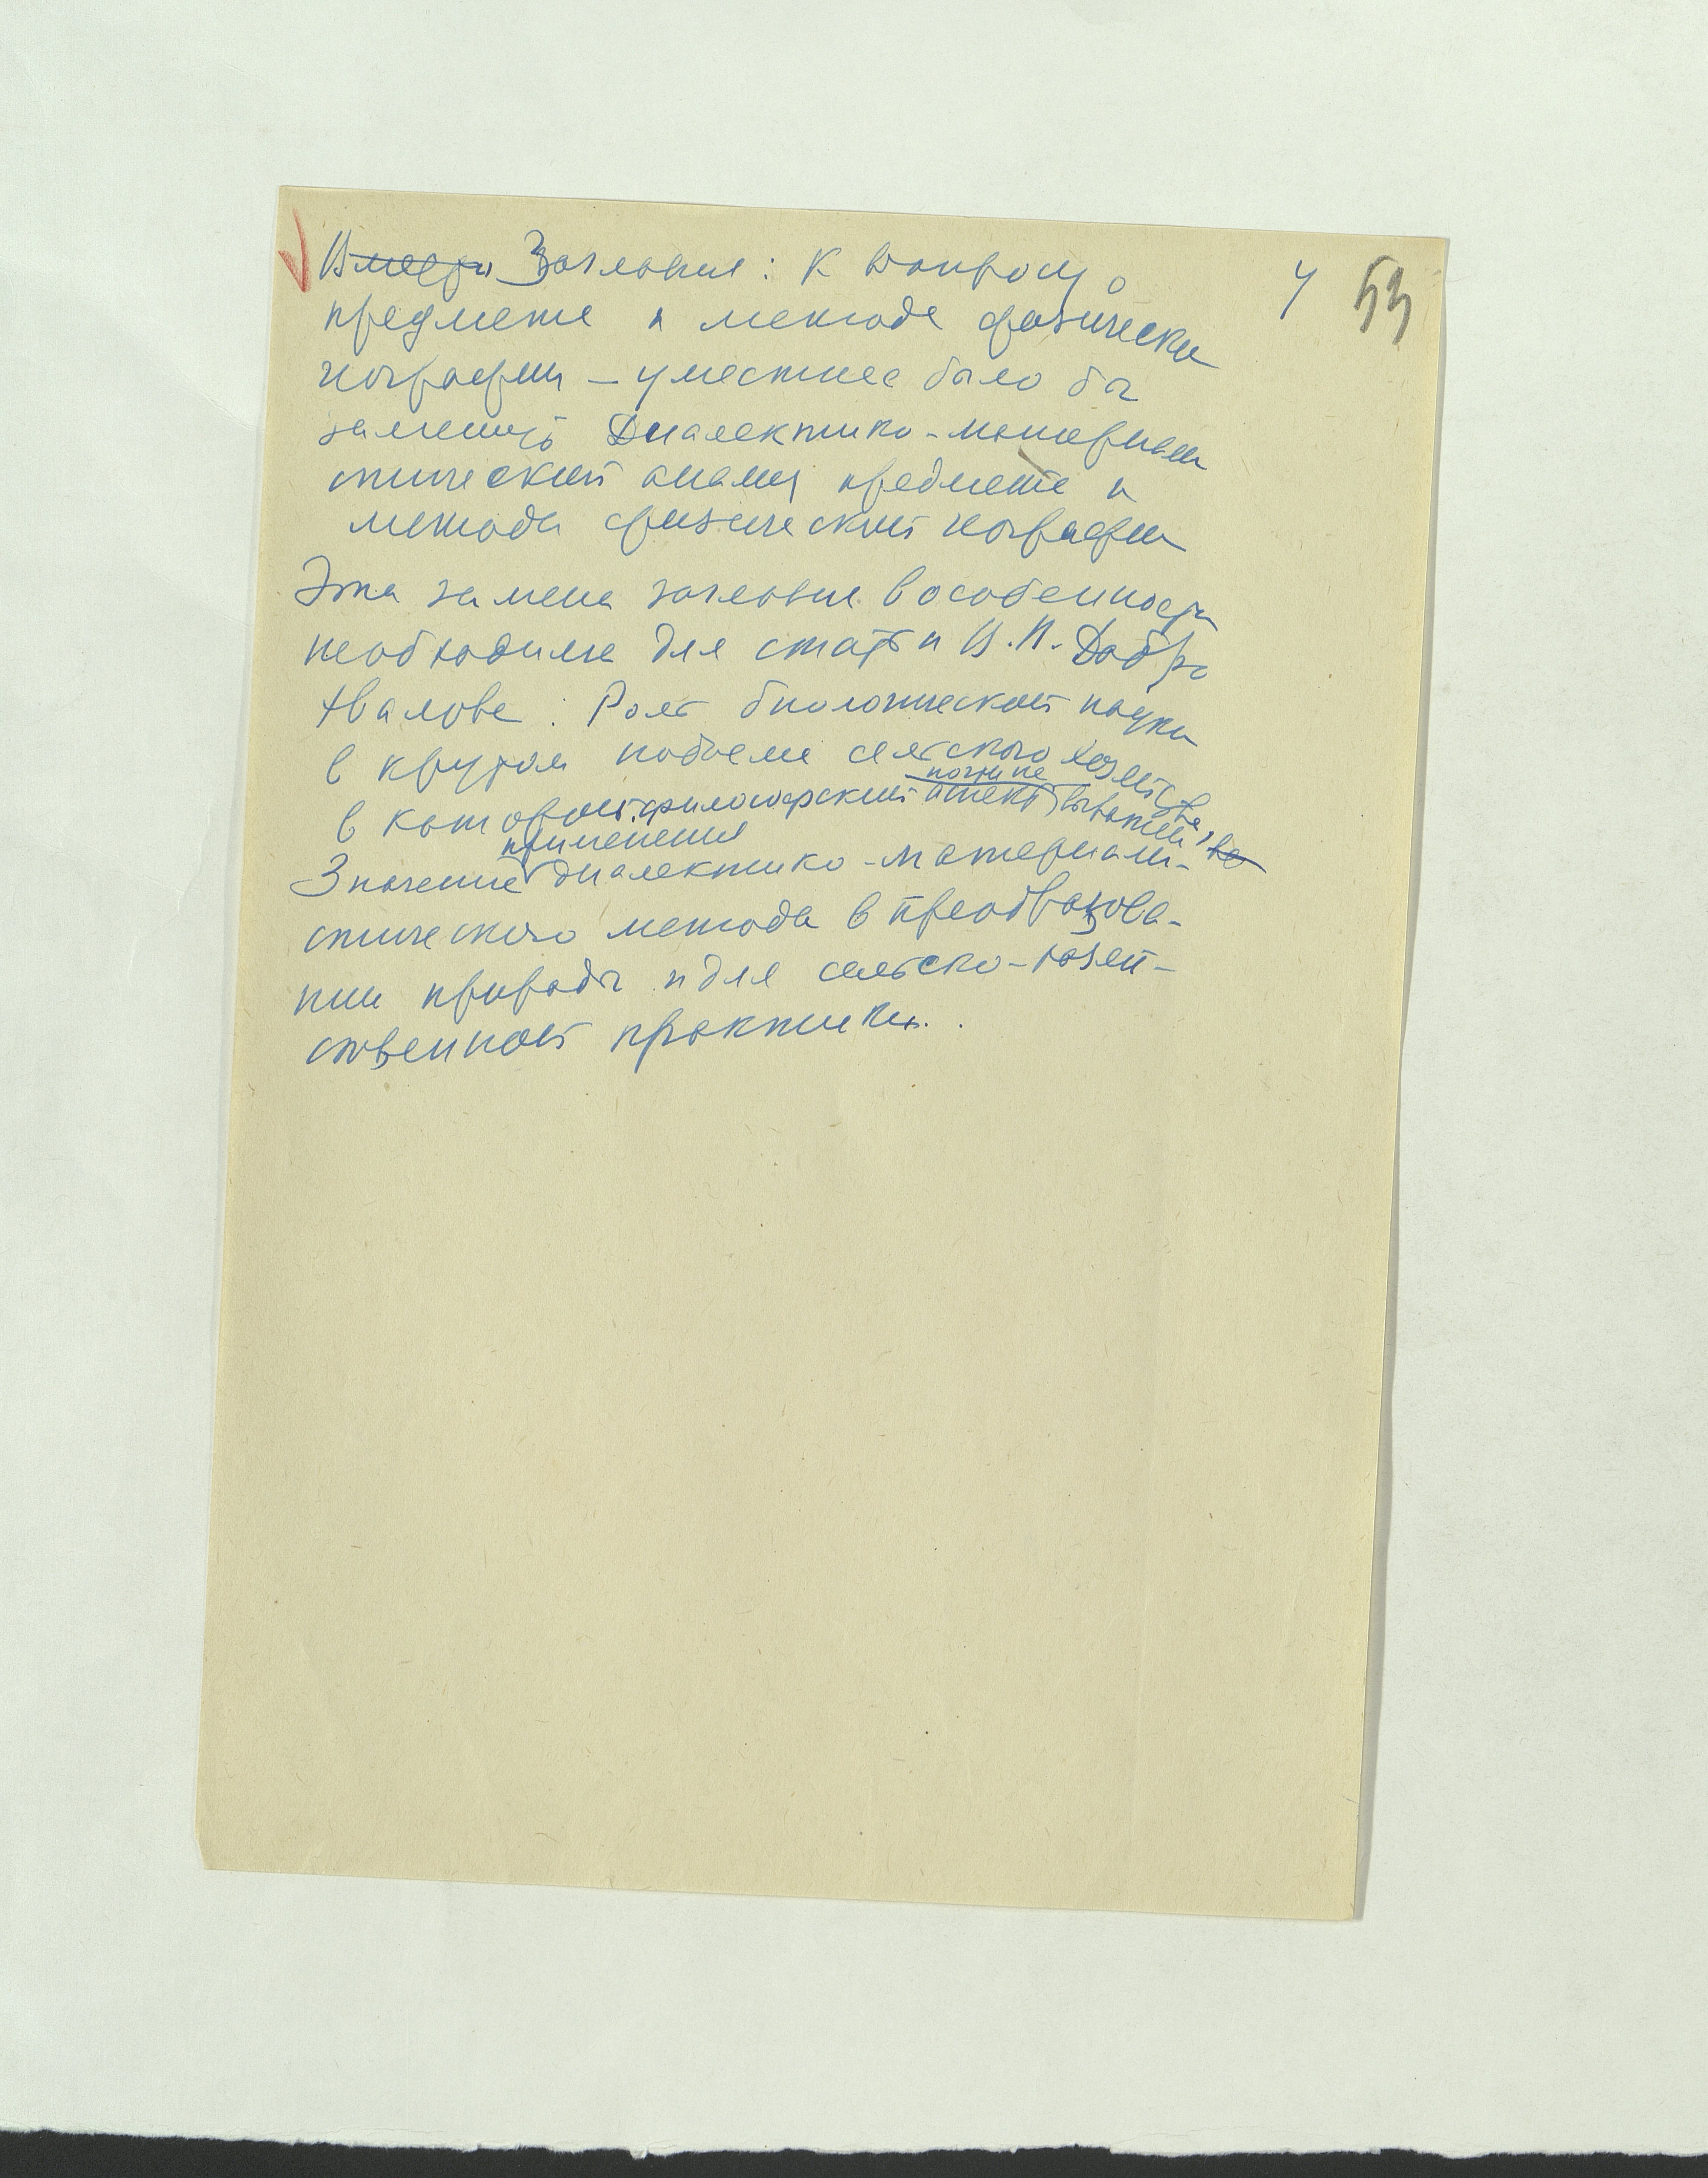 4 53
~~Вместо~~ Заглавия: К вопросу о
предмете и методе физически
географии – уместнее было бы
заменить Диалектико-материали
стический анализ предмета и
метода физической географии
Эта замена заглавия в особенности
необходима для статьи В.П. Добро
хвалова: Роль биологической науки
в крутом подъеме сельского хозяйства,
в которой философский аспект почти не
применения
Значение диалектико-материали-
стического метода в преобразова-
нии природы и для сельско-хозяй-
ственной практики.